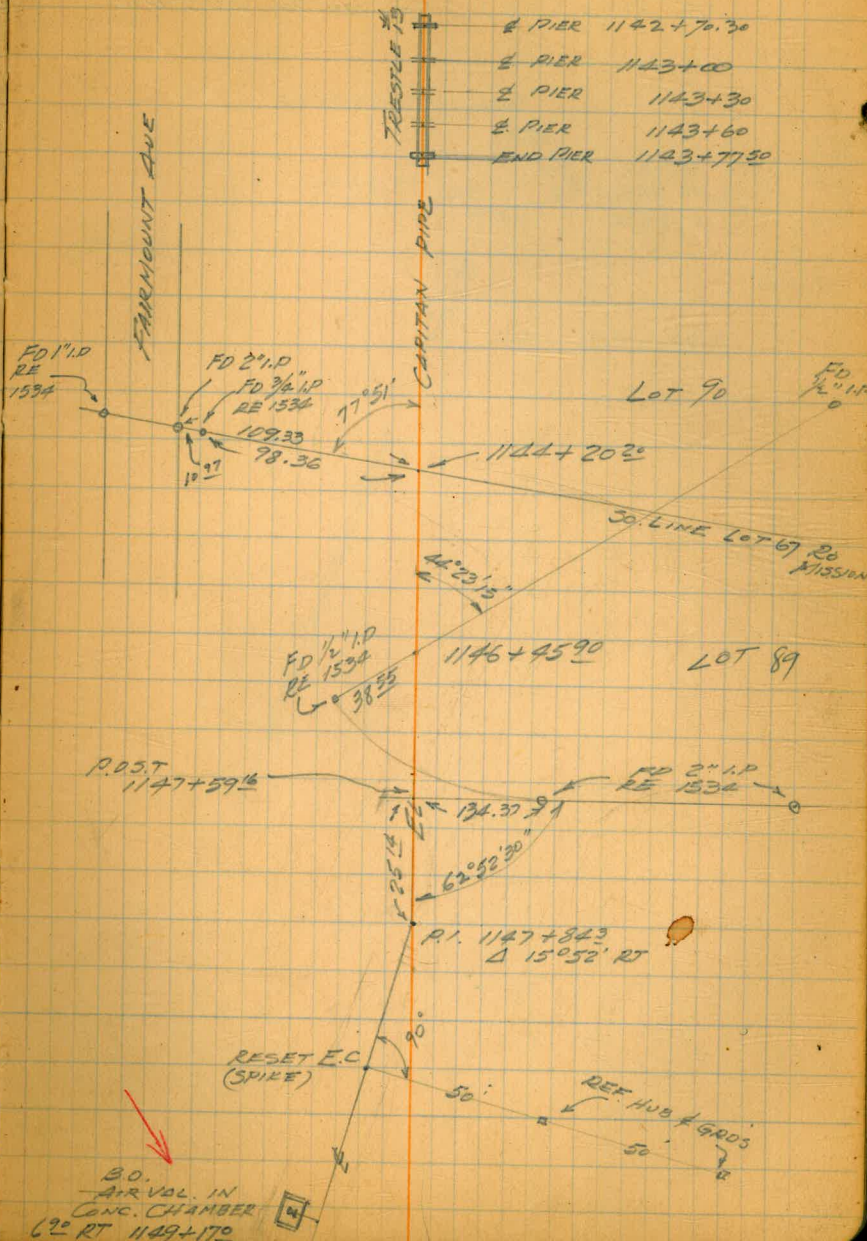 TRESTLE # 13
℄ PIER 1142+70.30
℄ PIER 1143+00
℄ PIER 1143+30
℄ PIER 1143+60
END PIER 1143+77 50
FAIRMOUNT AVE
CAPITAN PIPE
FD 1" I.P
RE
1534
FD 2" I.P
FD 3/4" I.P
RE 1534
77°51'
LOT 90
FD
1/2" I.P
109.33
98.36
10 97
1144+20 20
SO. LINE LOT 67 RO
MISSION
44°23'15"
FD 1/2" I.P
RE 1534
38 55
1146+45 90
LOT 89
P.O.S.T
1147+59 16
FD 2" I.P
RE 1534
134.37
25 14
62°52'30"
P.I. 1147+84 3
Δ 15°52' RT
90°
RESET E.C
(SPIKE)
50'
REF. HUB & GRDS
50'
B.O.
AIR VAL. IN
CONC. CHAMBER
6 90 RT 1149+17 0